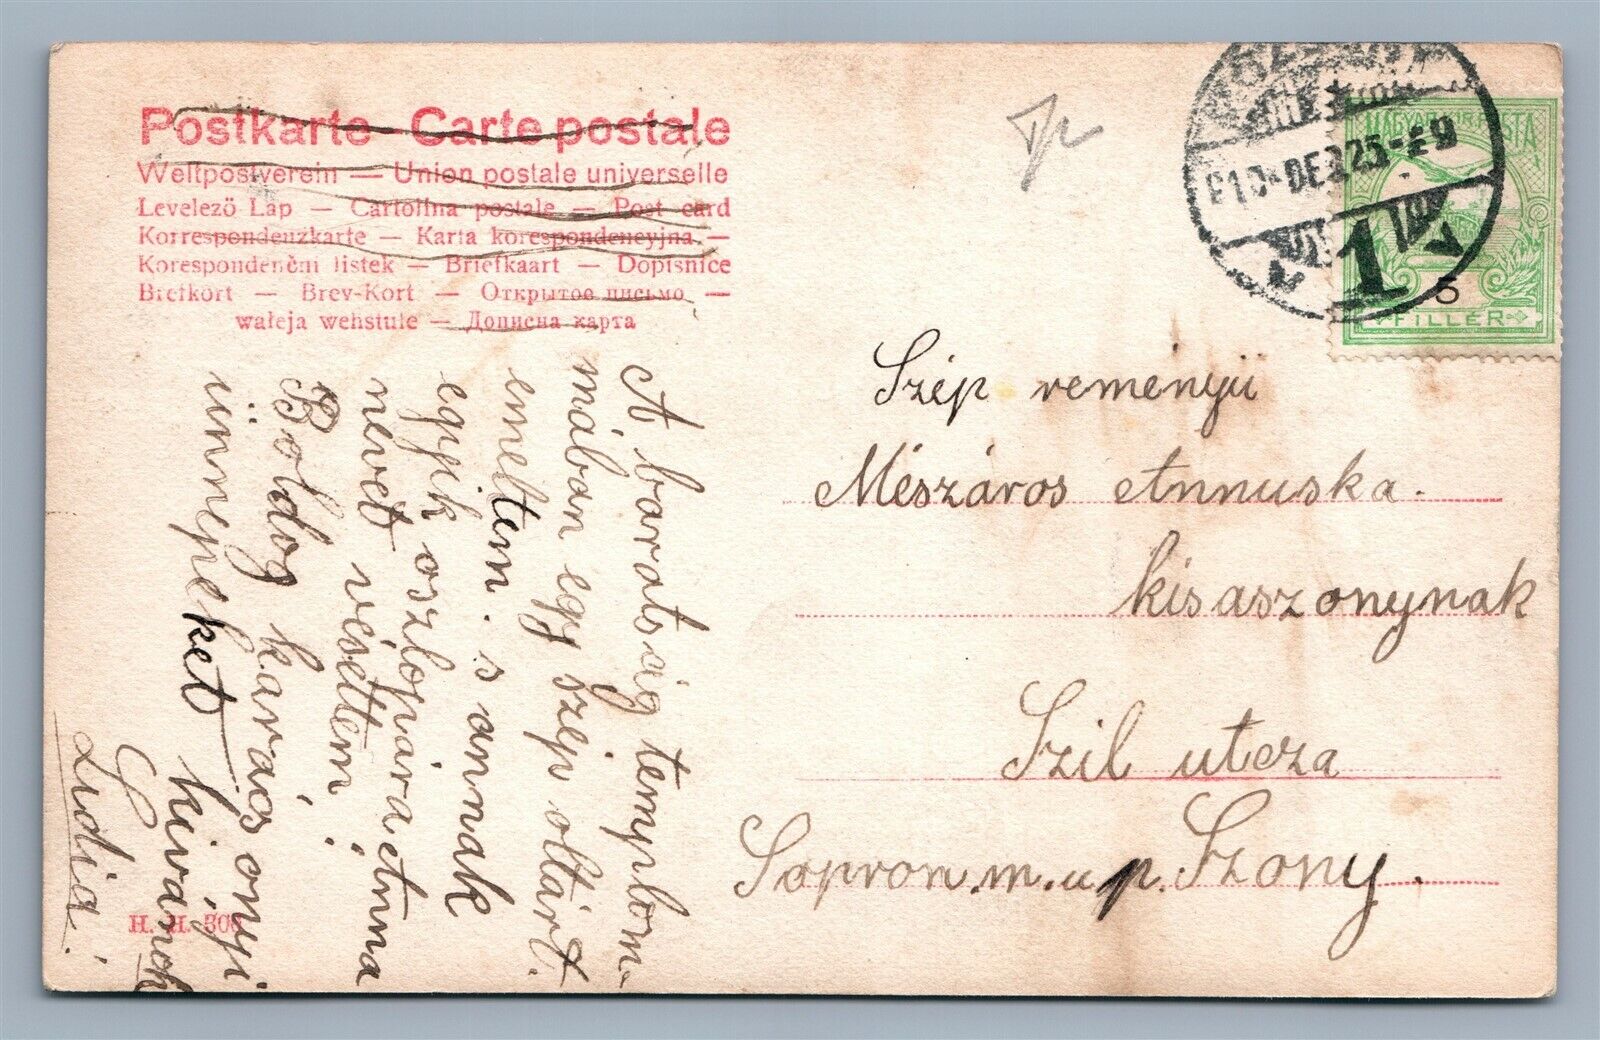 Postkarte - Carte postale
Weltpostverein — Union postale universelle
Levelező Lap — Cartolina postale — Post card
Korrespondenzkarte — Karta korespondencyjna —
Korespondenční listek — Briefkaart — Dopisnice
Brefkort — Brev-Kort — Открытое письмо —
wałeja wehstule — Дописна карта
A baratság templom-
mában egy szép oltárt
emeltem. s annak
egyik oszlopára Anna
nevet véstem!
Boldog karácsonyi
ünnepeket kivánok
Lidia.
H. H. 306
MAGYAR KIR. POSTA
5
FILLÉR
910 DE 225
1
Szép reményü
Mészáros Annuska.
kisaszonynak
Szil utcza
Sopron.m.u.p. Szony.